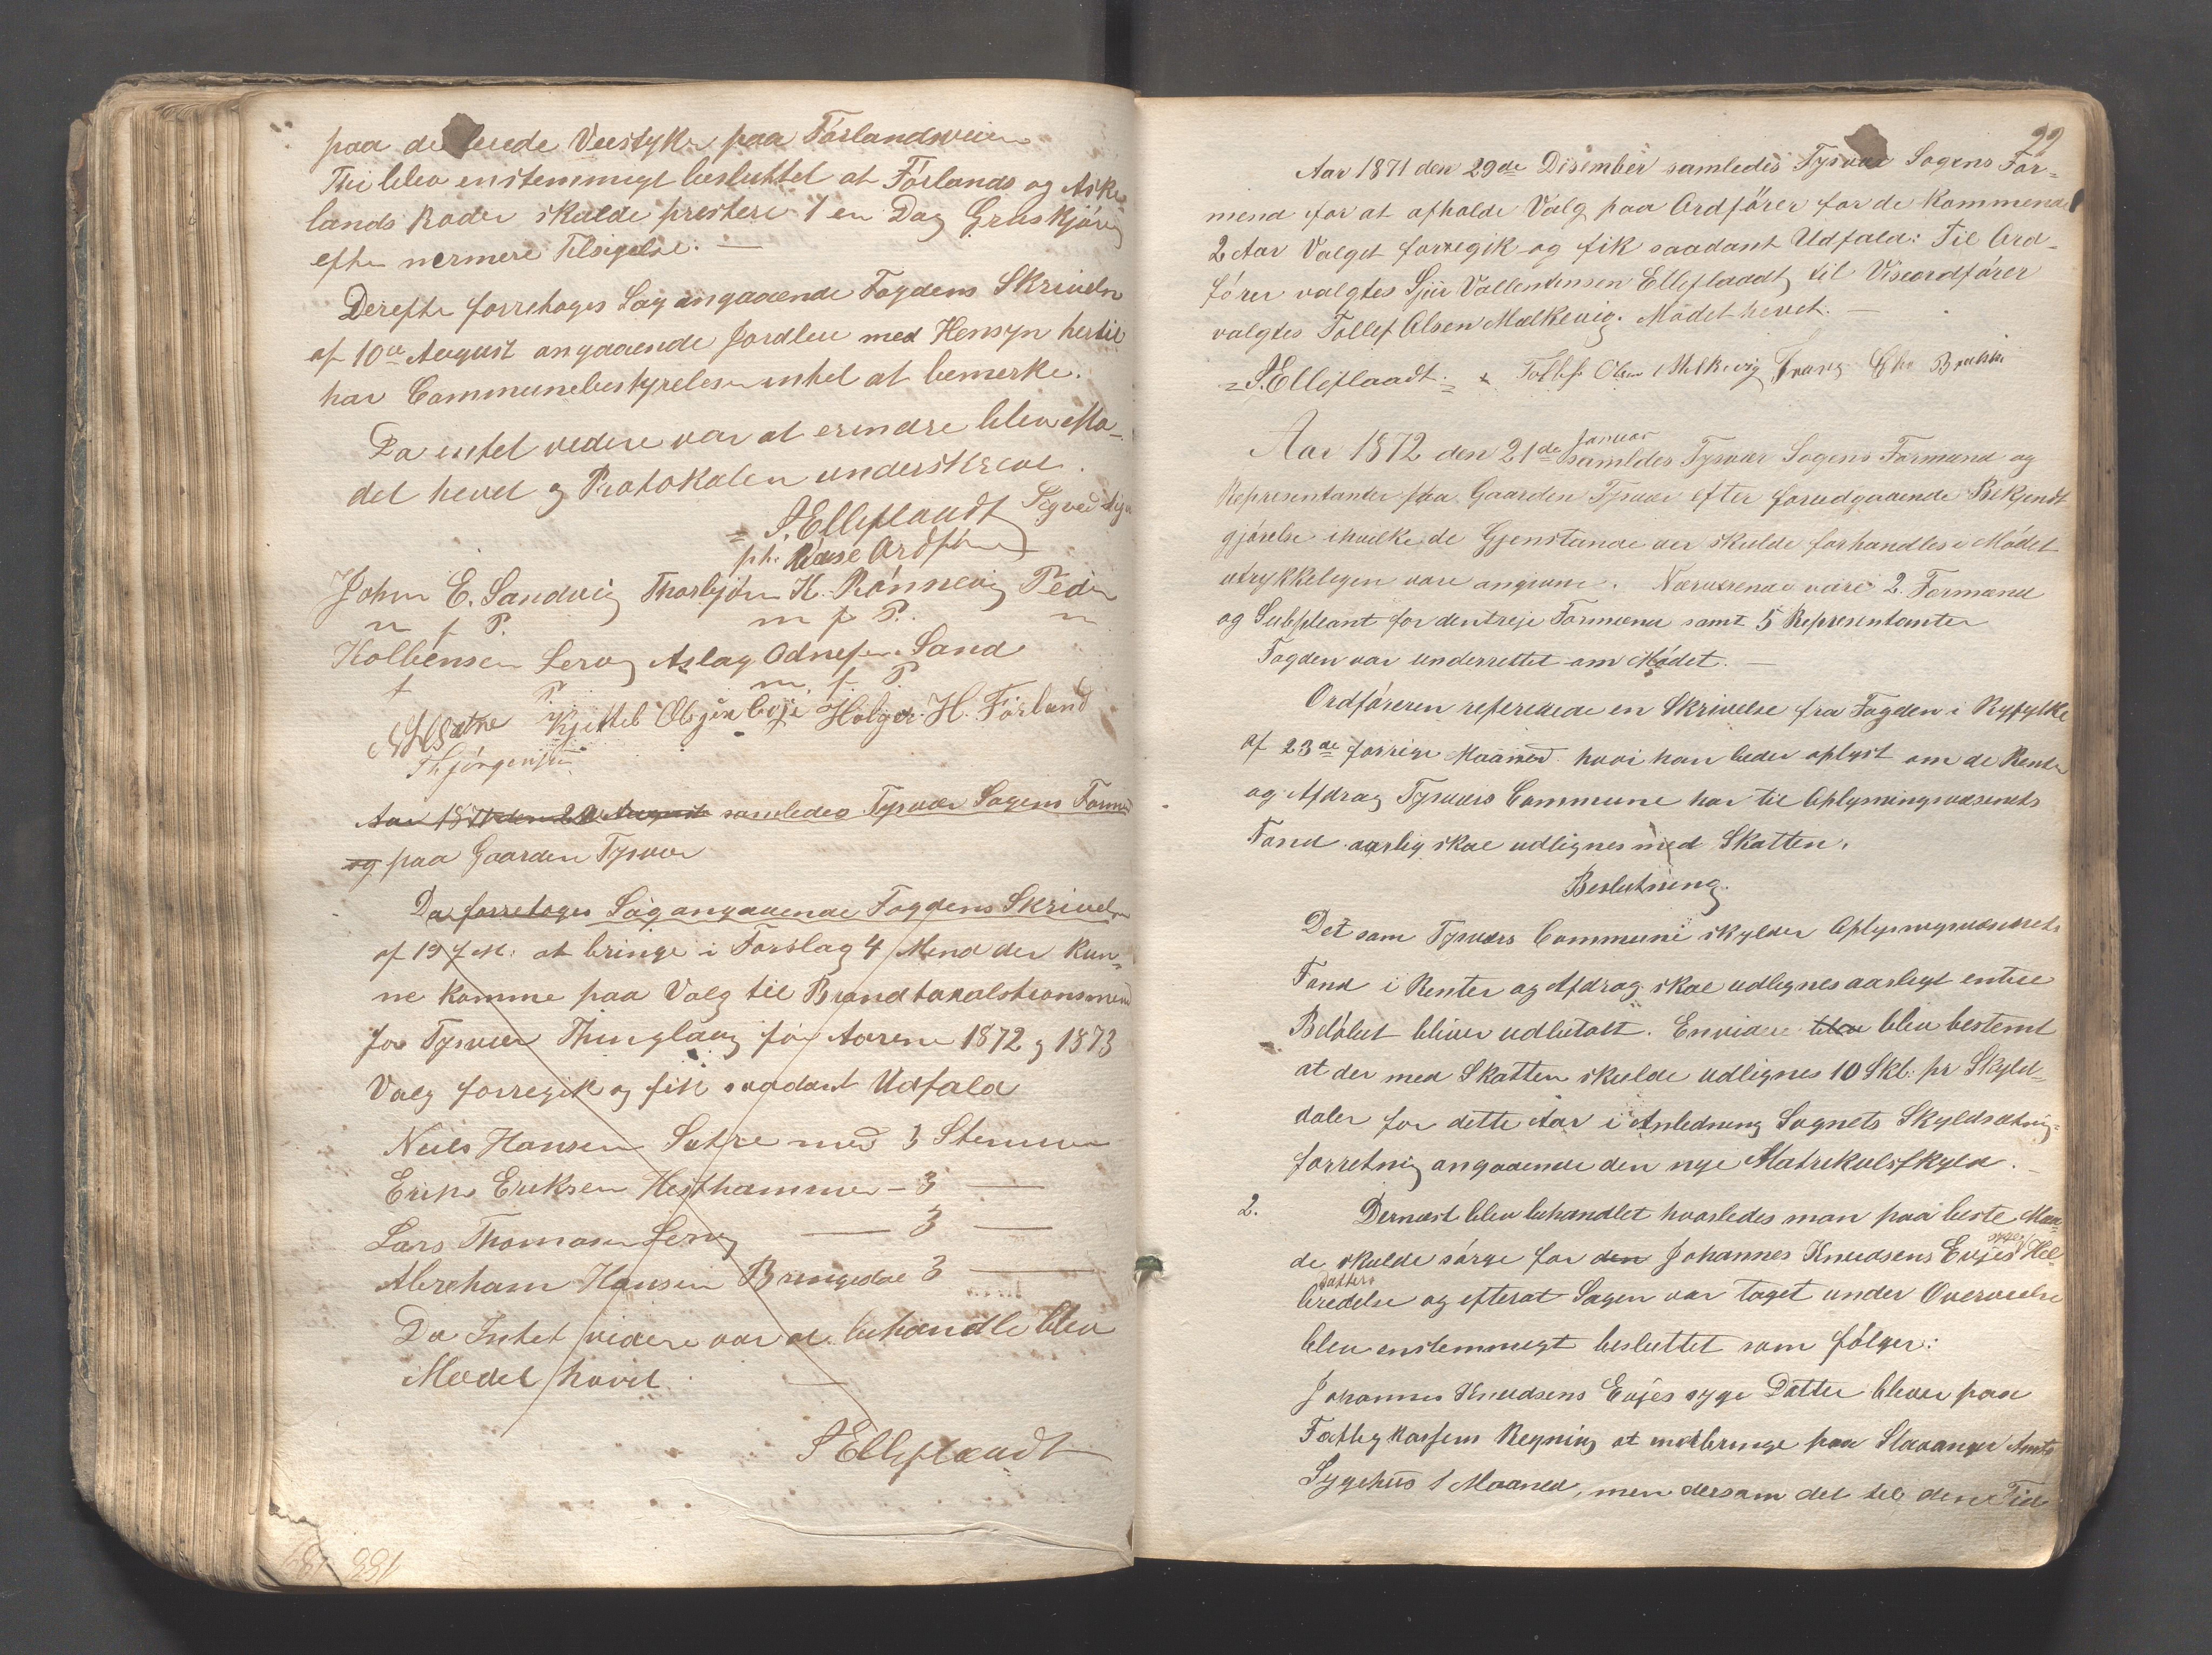 paa de Veistyker paa Førlandsveien
Thi blev enstemmigt besluttet at Førlands og Aske
lands Roder skulde prestere 1 en Dag Gruskjøring
efter nermere Tilsigelse. —
Derefter forretoges Sag angaaende Fogdens Skrivelse
af 10de August angaaende Jordleie med Hensyn hertil
har Communebestyrelsen intet at bemerke.
Da intet videre var at erindre blev Mø-
det hevet og Protokolen underskreve.
S. Elleflaadt Sigved
ph. Ordfører
John E. Sandvig Thorbjørn K. Rønnevig Peder
m f P. m f P. m
Kolbensen Lervig Aslag Odnesen Sand
f P. m. f. P.
NHSætre Kjettel Olsen Evje Holger H. Førland
Th Jørgensen
Aar 1871 den 29 August samledes Tysvær Sogens Formend
og paa Gaarden Tysvær
Da forretoges Sag angaaende Fogdens Skrivelse
af 19 f M: at bringe i Forslag 4 Mend der kun-
ne komme paa Valg til Brandtaxalstionsmend
for Tysvær Thinglaug for Aarene 1872 og 1873
Valg forregik og fik saadant Udfald
Neils Hansen Sætre med 3 Stemmer
Erik Eriksen Hesthammer – 3 —
Lars Thomasen Lervig — 3 —
Abreham Hansen Bringedal 3 —
Da Intet videre var at behandle blev
Mødet hævet. —
S Elleflaadt
99
Aar 1871 den 29de Disember samledes Tysvær Sogens For-
mend for at afholde Valg paa Ordfører for de kommende
2 Aar Valget forregik og fik saadant Udfald: Til Ord-
fører valgtes Sjur Vallentinsen Elleflaadt, til Viseordfører
valgtes Tollef Olsen Mælkevig. Mødet hevet. —
= S. Elleflaadt. = Tollef Olsen Melkevig
Aar 1872 den 21de Januar samledes Tysvær Sogens Formænd og
Representanter paa Gaarden Tysvær efter forudgaaende Bekjendt
gjørelse ihvilke de Gjenstande der skulde forhandles i Mødet
utrykkeligen vare angivne. Nærværende vare 2 Formænd
og Subpleant for dentreje Formænd samt 5 Representanter
Fogden var underrettet om Mødet. —
Ordføreren refererede en Skrivelse fra Fogden i Ryfylke
af 23de forrige Maaned hvori han beder oplyst om de Renter
og Afdrag Tysværs Commune har til Oplysningsvæsenets
Fond aarlig skal udlignes med Skatten.
Beslutning.
Det som Tysværs Commune skylder Oplysningsvæsenets
Fond i Renter og Afdrag skal udlignes aarligt entil
Beløbet bliver udbetalt. Envidere blev blev bestemt
at der med Skatten skulde udlignes 10 Skl. pr Skyld-
daler for dette Aar i Anledning Sognets Skyldsætnings-
forretning angaaende den nye Matrikulskyld. —
2. Dernæst blev behandlet hvorledes man paa beste Maa-
de skulde sørge for den Johannes Knudsens Evjes syge Datters Hel-
bredelse og efterat Sagen var taget under Overveielse
blev enstemmigt besluttet som følger:
Johannes Knudsens Evjes syge Datter bliver paa
Fattigkassens Regning at indbringe paa Stavanger Amts
Sygehus 1 Maaned, men dersom det til den Tid